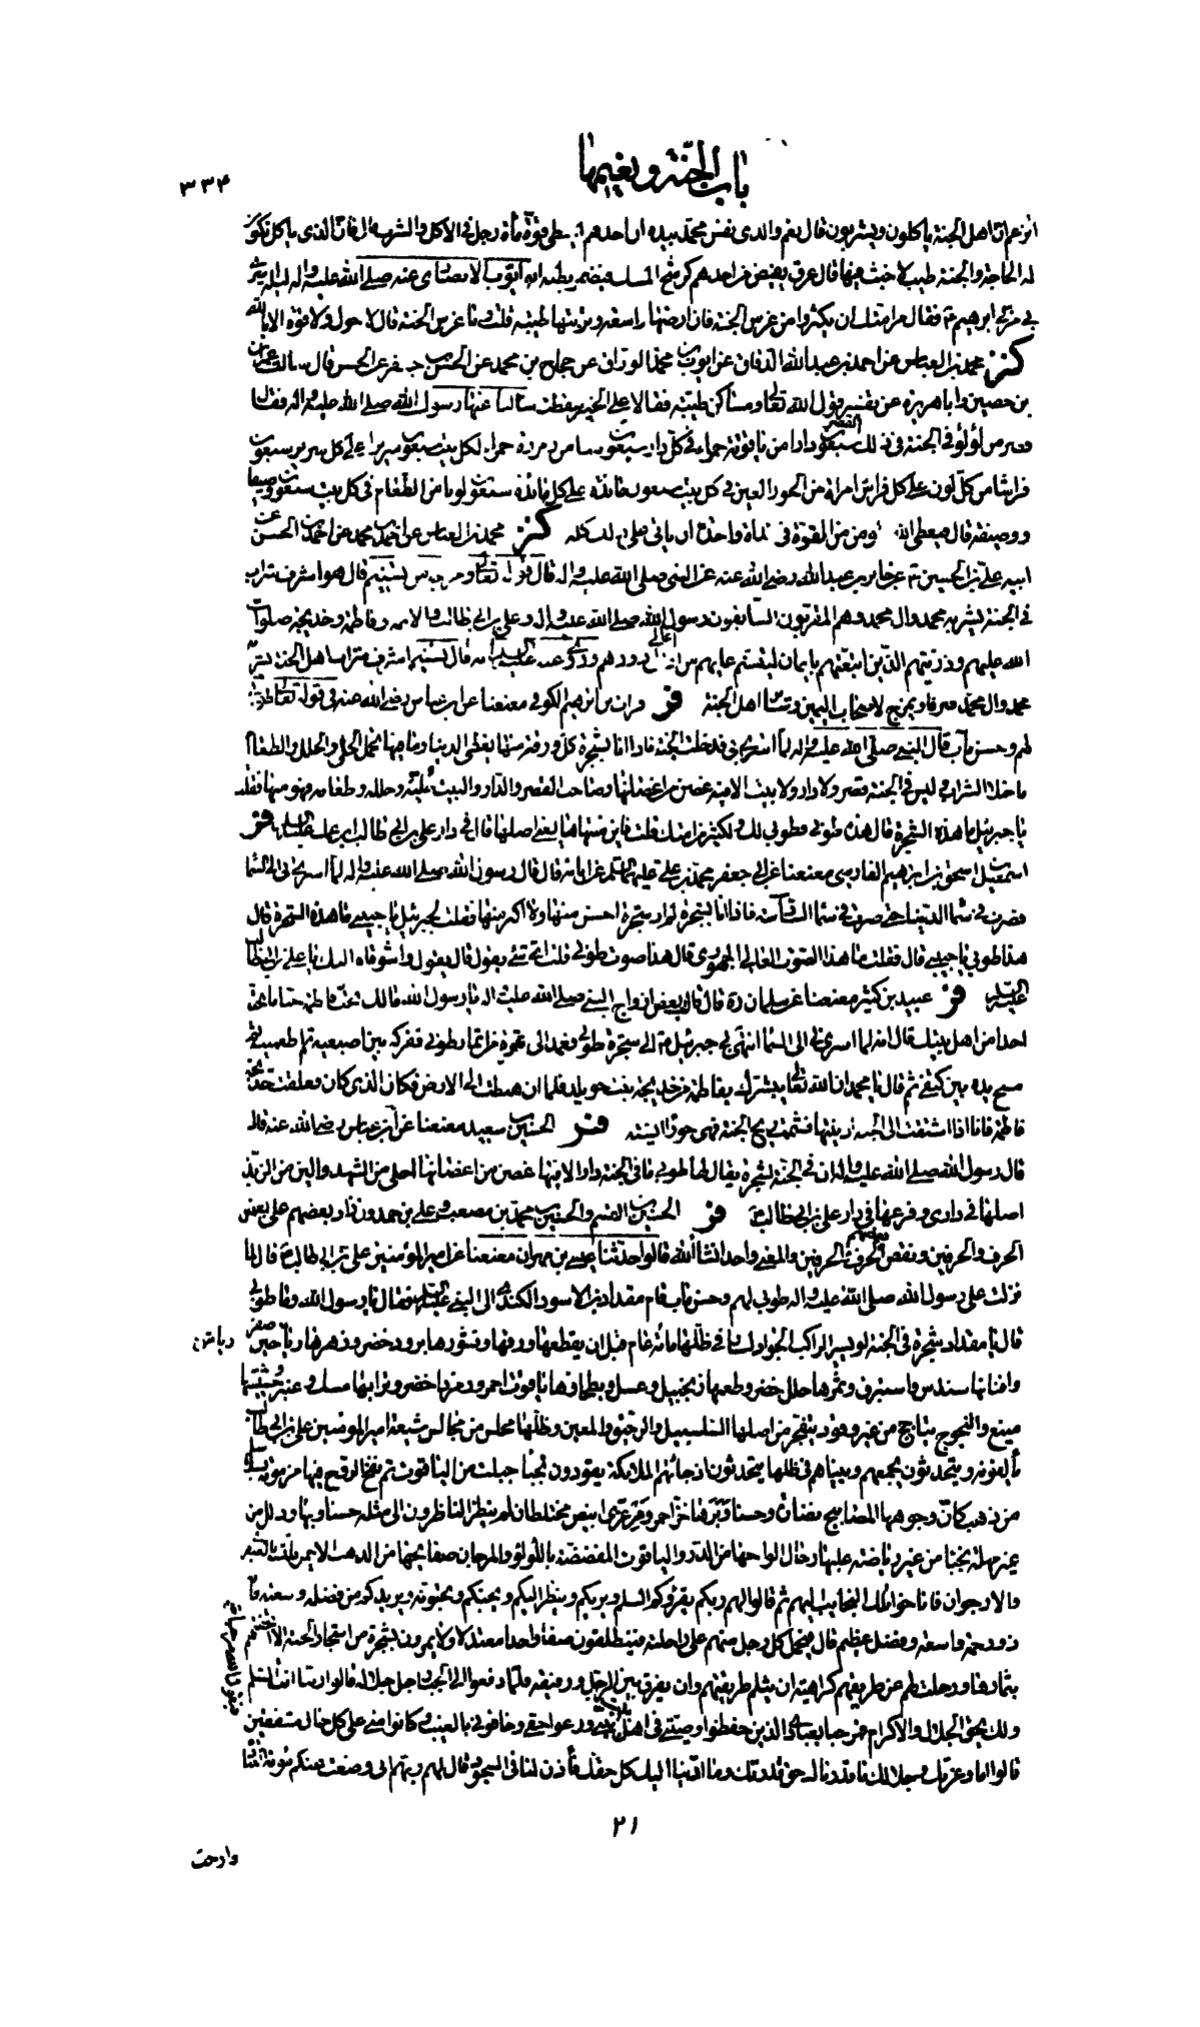 باب الجنة ونعيمها
٣٣٤
ان اهل الجنة يأكلون ويشربون قال نعم والذى نفس محمد بيده ان احدهم ليعطى قوة مأة رجل فى الاكل والشرب قال فان الذى يأكل تكون
له الحاجة والجنة طيب لا خبث فيها قال عرق يفيض من احدهم كرشح المسك فيضمر بطنه ابو ايوب الانصارى عنه صلى الله عليه واله ليلة اسرى
بى مر بى ابرهيم ع فقال مر امتك ان يكثروا من غرس الجنة فان ارضها واسعة وتربتها طيبة قلت وما غرس الجنة قال لا حول ولا قوة الا بالله
كنز محمد بن العباس عن احمد بن عبد الله الدقاق عن ايوب بن محمد الوراق عن حجاج بن محمد عن الحسن بن جعفر عن الحسن قال سالت عمران
بن حصين وابا هريرة عن تفسير قول الله تعالى ومساكن طيبة فقالا على الخبير سقطت سالنا عنها رسول الله صلى الله عليه واله فقال
قصر من لؤلؤ فى الجنة فى ذلك القصر سبعون دارا من ياقوتة حمراء فى كل دار سبعون بيتا من زمردة خضراء لكل بيت سبعون سريرا على كل سرير سبعون
فراشا من كل لون على كل فراش امراة من الحور العين فى كل بيت سبعون مائدة على كل مائدة سبعون لونا من الطعام فى كل بيت سبعون وصيفا
ووصيفة قال فيعطى الله المؤمن من القوة فى غداة واحدة ان ياتى على ذلك كله كنز محمد بن العباس عن احمد بن محمد عن احمد بن الحسن عن
ابيه على بن الحسين ع عن جابر بن عبد الله رضى الله عنه عن النبى صلى الله عليه واله قال قوله تعالى ومزاجه من تسنيم قال هو اشرف شراب
فى الجنة يشربه محمد وال محمد وهم المقربون السابقون رسول الله صلى الله عليه واله وعلى بن ابى طالب والائمة وفاطمة وخديجة صلوات
الله عليهم وذريتهم الذين اتبعتهم بايمان ليتسنم عليهم من اعالى دورهم وروى عنه عليه السلام انه قال تسنيم اشرف شراب اهل الجنة يشربه
محمد وال محمد صرفا ويمزج لاصحاب اليمين وسائر اهل الجنة فر فرات بن ابرهيم الكوفى معنعنا عن ابن عباس رضى الله عنه فى قوله تعالى طوبى
لهم وحسن ماب قال النبى صلى الله عليه واله لما اسرى بى فدخلت الجنة فاذا انا بشجرة كل ورقة منها يغطى الدنيا وما فيها يحمل الحلى والحلل والطعام
ما خلا الشراب وليس فى الجنة قصر ولا دار ولا بيت الا فيه غصن من اغصانها وصاحب القصر والدار والبيت حليته وحلله وطعامه فهو منها فقلت
يا جبرئيل ما هذه الشجرة قال هذه طوبى فطوبى لك ولكثير من امتك قلت فاين منتهاها يعنى اصلها قال فى دار على بن ابى طالب ابن عمك عليه السلام فر
اسمعيل بن اسحق بن ابرهيم الفارسى معنعنا عن ابى جعفر محمد بن على عليهما السلم عن ابائه قال قال رسول الله صلى الله عليه واله لما اسرى بى الى السما
فصرت فى سما الدنيا حتى صرت فى سما السادسة فاذا انا بشجرة لم ار شجرة احسن منها ولا اكبر منها فقلت لجبرئيل يا حبيبى ما هذه الشجرة قال
هذا طوبى يا حبيبى قال فقلت ما هذا الصوت العالى الجهورى قال هذا صوت طوبى قلت اى شئ يقول قال يقول واشوقاه اليك يا على بن ابى طالب
عليه السلام فر عبيد بن كثير معنعنا عن سلمان ره قال قال بعض ازواج النبى صلى الله عليه واله يا رسول الله مالك تحب فاطمة حبا ما تحبه
احدا من اهل بيتك قال انه لما اسرى بى الى السما انتهى بى جبرئيل ع الى شجرة طوبى فعمد الى ثمرة من اثمار طوبى ففركه بين اصبعيه ثم اطعمنيه ثم
مسح يده بين كتفى ثم قال يا محمد ان الله تعالى يبشرك بفاطمة من خديجة بنت خويلد فلما ان هبطت الى الارض فكان الذى كان فعلقت خديجة
فاطمة فانا اذا اشتقت الى الجنة ادنيتها فشممت ريح الجنة فهى حوراء انسية فر الحسين بن سعيد معنعنا عن ابن عباس رضى الله عنه قال
قال رسول الله صلى الله عليه واله ان فى الجنة لشجرة يقال لها طوبى ما فى الجنة دار الا فيها غصن من اغصانها احلى من الشهد والين من الزبد
اصلها فى دارى وفرعها فى دار على بن ابى طالب ع فر الحسين بن القسم والحسين بن محمد بن مصعب وعلى بن حمدون زاد بعضهم على بعض
الحرف والحرفين ونقص بعضهم الحرف والحرفين والمعنى واحد انشا الله قالوا حدثنا عيسى بن مهران معنعنا عن امير المؤمنين على بن ابى طالب ع قال لما
نزلت على رسول الله صلى الله عليه واله طوبى لهم وحسن ماب قام مقداد بن الاسود الكندى الى النبى عليه السلام فقال يا رسول الله وما طوبى
قال يا مقداد شجرة فى الجنة لو يسير الراكب الجواد لسار فى ظلها مائة عام قبل ان يقطعها ورقها وقشورها برود خضر وزهرها رياض صفر
وافنانها سندس واستبرق وثمرها حلل خضر وطعمها زنجبيل وعسل وبطحاؤها ياقوت احمر وزمرد اخضر وترابها مسك وعنبر وحشيشها
منيع والنجوج يتاجج من غير وقود يتفجر من اصلها السلسبيل والرحيق والمعين وظلها مجلس من مجالس شيعة امير المؤمنين على بن ابى طالب
يألفونه ويتحدثون بجمعهم وبيناهم فى ظلها يتحدثون اذ جائتهم الملائكة يقودون نجبا جبلت من الياقوت ثم نفخ الروح فيها مزمومة بسلاسل
من ذهب كان وجوهها المصابيح نضارة وحسنا وبرها خز احمر ومرعزى ابيض مختلطان لم ينظر الناظرون الى مثله حسنا وبهاء وذلل من
غير مهلة نجبا من غير رياضة عليها رحال الواحها من الدر والياقوت المفضضة باللؤلؤ والمرجان صفايحها من الذهب الاحمر ملبسة بالعبقر
والارجوان فاناخوا تلك النجايب اليهم ثم قالوا لهم ربكم يقرؤكم السلم ويريكم وينظر اليكم ويحبكم وتحبونه ويزيدكم من فضله وسعته فانه
ذو رحمة واسعة وفضل عظيم قال فيتحول كل رجل منهم على راحلته فينطلقون صفا واحدا معتدلا ولا يمرون بشجرة من اشجار الجنة الا اتحفتهم
بثمارها ورحلت لهم عن طريقهم كراهية ان يثلم طريقتهم وان يفرق بين الرجل ورفيقه فلما دفعوا الى الجبار جل جلاله قالوا ربنا انت السلم
ولك يحق الجلال والاكرام فمرحبا بعبادى الذين حفظوا وصيتى فى اهل بيت نبيى ورعوا حقى وخافونى بالغيب وكانوا منى على كل حال مشفقين
قالوا اما وعزتك وجلالك ما قدرناك حق قدرتك وما ادينا اليك كل حقك فأذن لنا فى السجود قال لهم ربهم انى وضعت عنكم مؤنة العبادة
٢١
وارحت